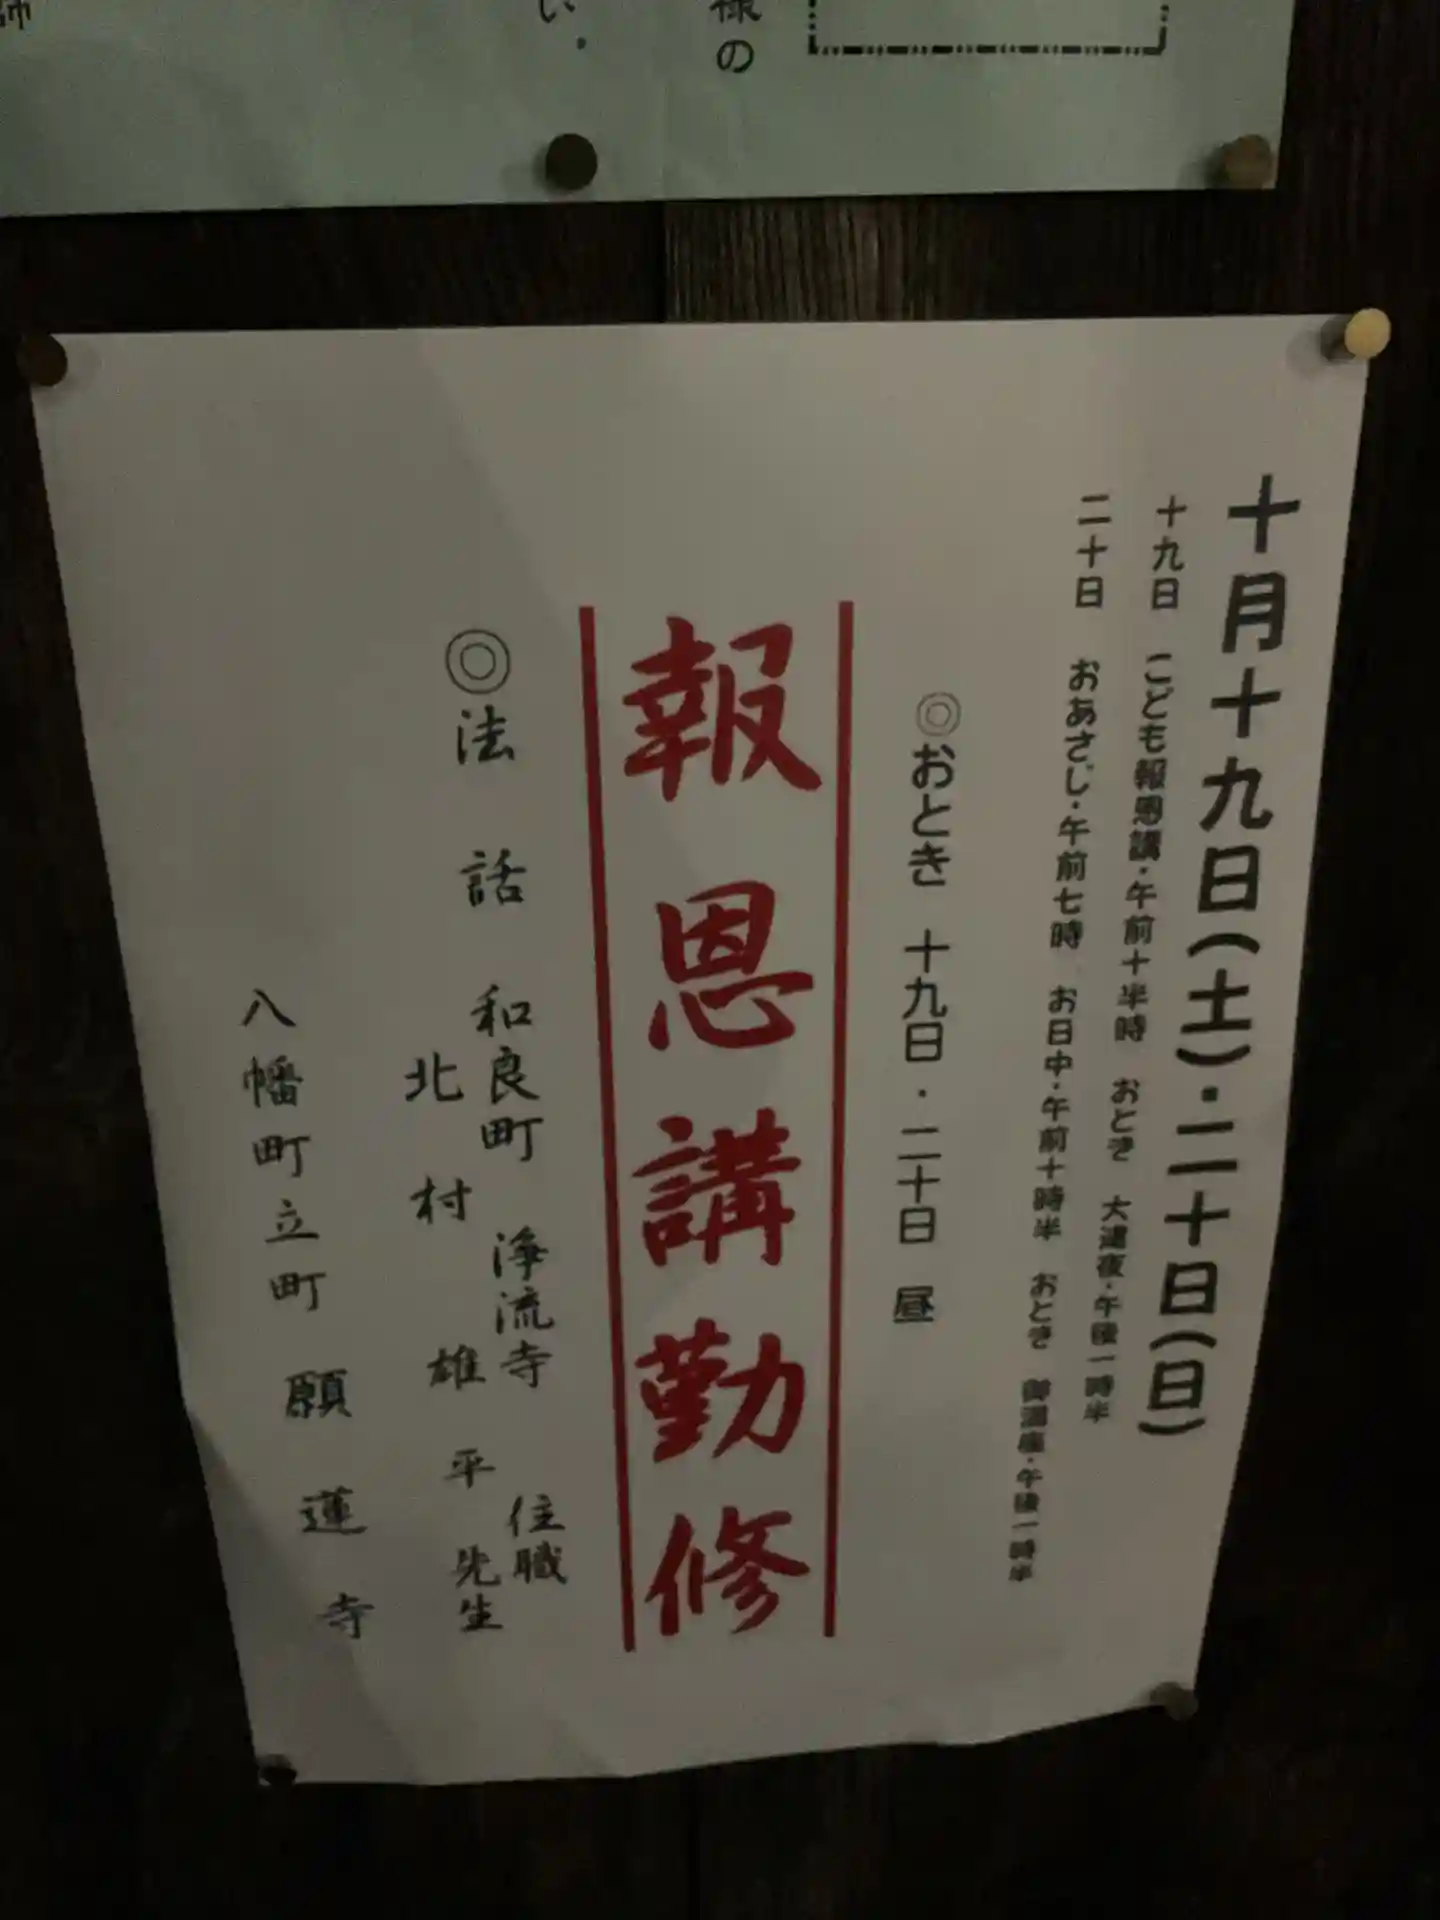 様の
い.
師
十月十九日(土)・二十日(日)
十九日 こども報恩講・午前十半時 おとき 大逮夜・午後一時半
二十日 おあさじ・午前七時 お日中・午前十時半 おとき 御満座・午後一時半
◎おとき 十九日・二十日 昼
報恩講勤修
◎法話 和良町 浄流寺 住職
北村 雄平 先生
八幡町立町 願蓮寺